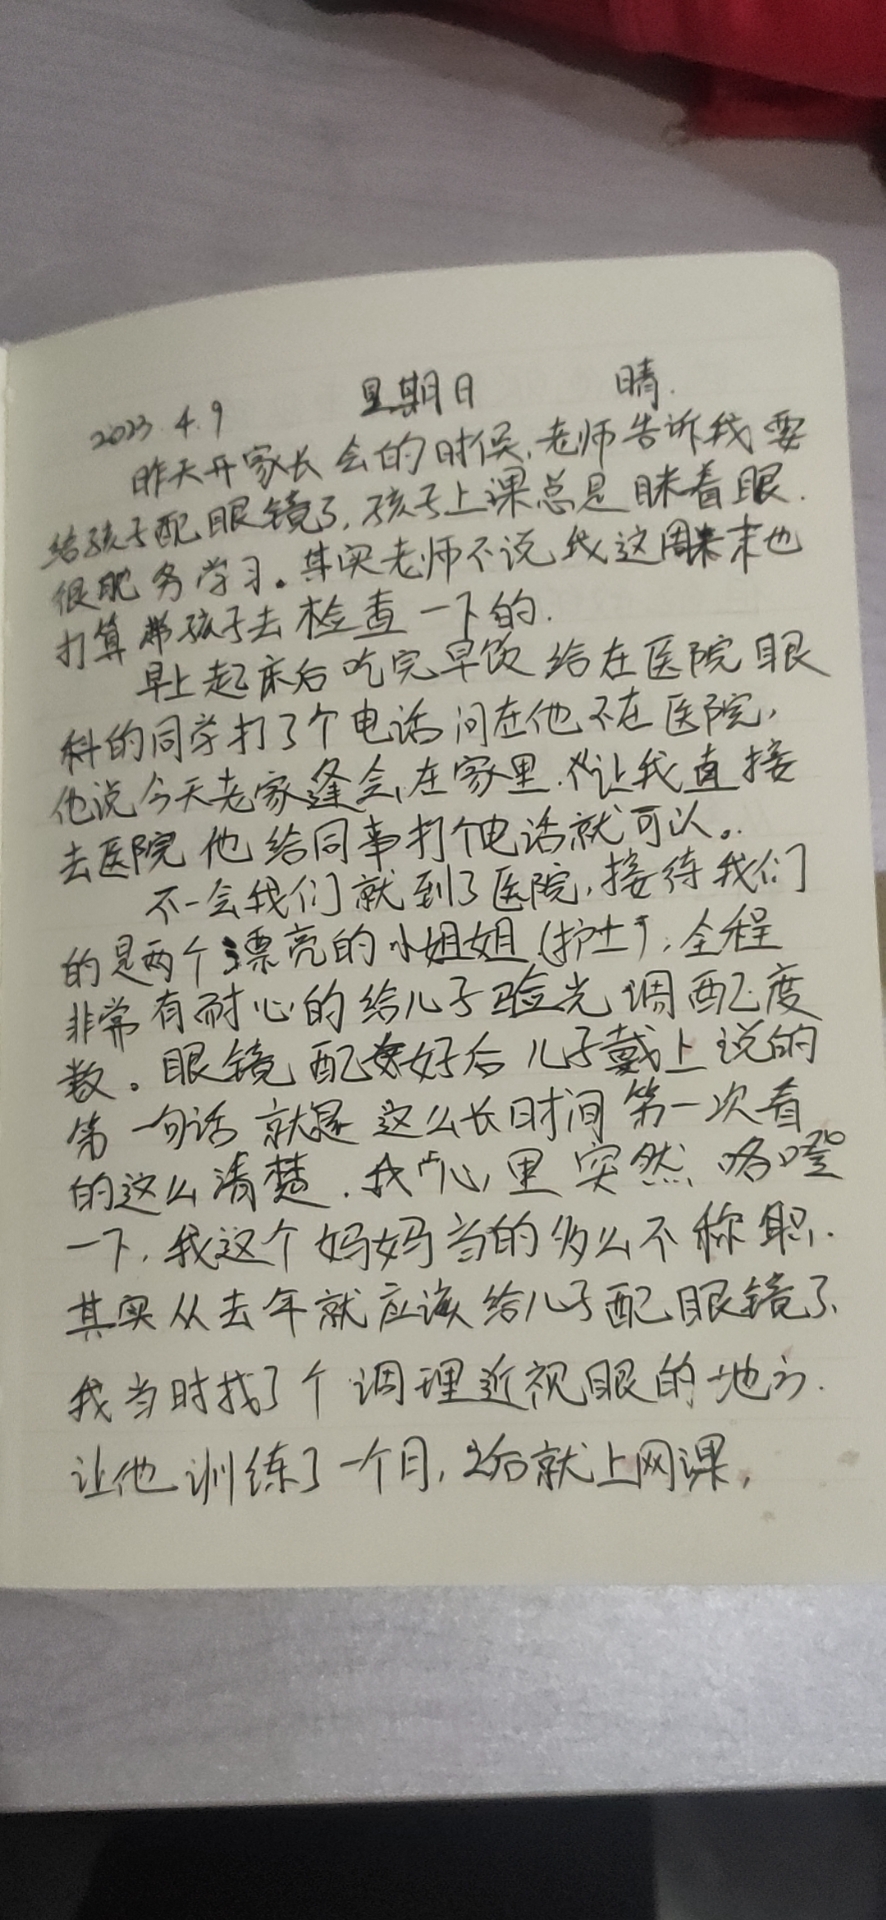 2023.4.9 星期日 晴.
昨天开家长会的时候,老师告诉我要
给孩子配眼镜了,孩子上课总是眯着眼.
很服务学习。其实老师不说我这周末也
打算带孩子去检查一下的.
早上起床后吃完早饭给在医院眼
科的同学打了个电话问在他不在医院,
他说今天老家逢会,在家里.让我直接
去医院他给同事打个电话就可以。
不一会我们就到了医院,接待我们
的是两个漂亮的小姐姐(护士),全程
非常有耐心的给儿子验光调配度
数。眼镜配好后儿子戴上说的
第一句话就是这么长时间第一次看
的这么清楚.我心里突然咯噔
一下,我这个妈妈当的多么不称职.
其实从去年就应该给儿子配眼镜了.
我当时找了个调理近视眼的地方.
让他训练了一个月,之后就上网课,